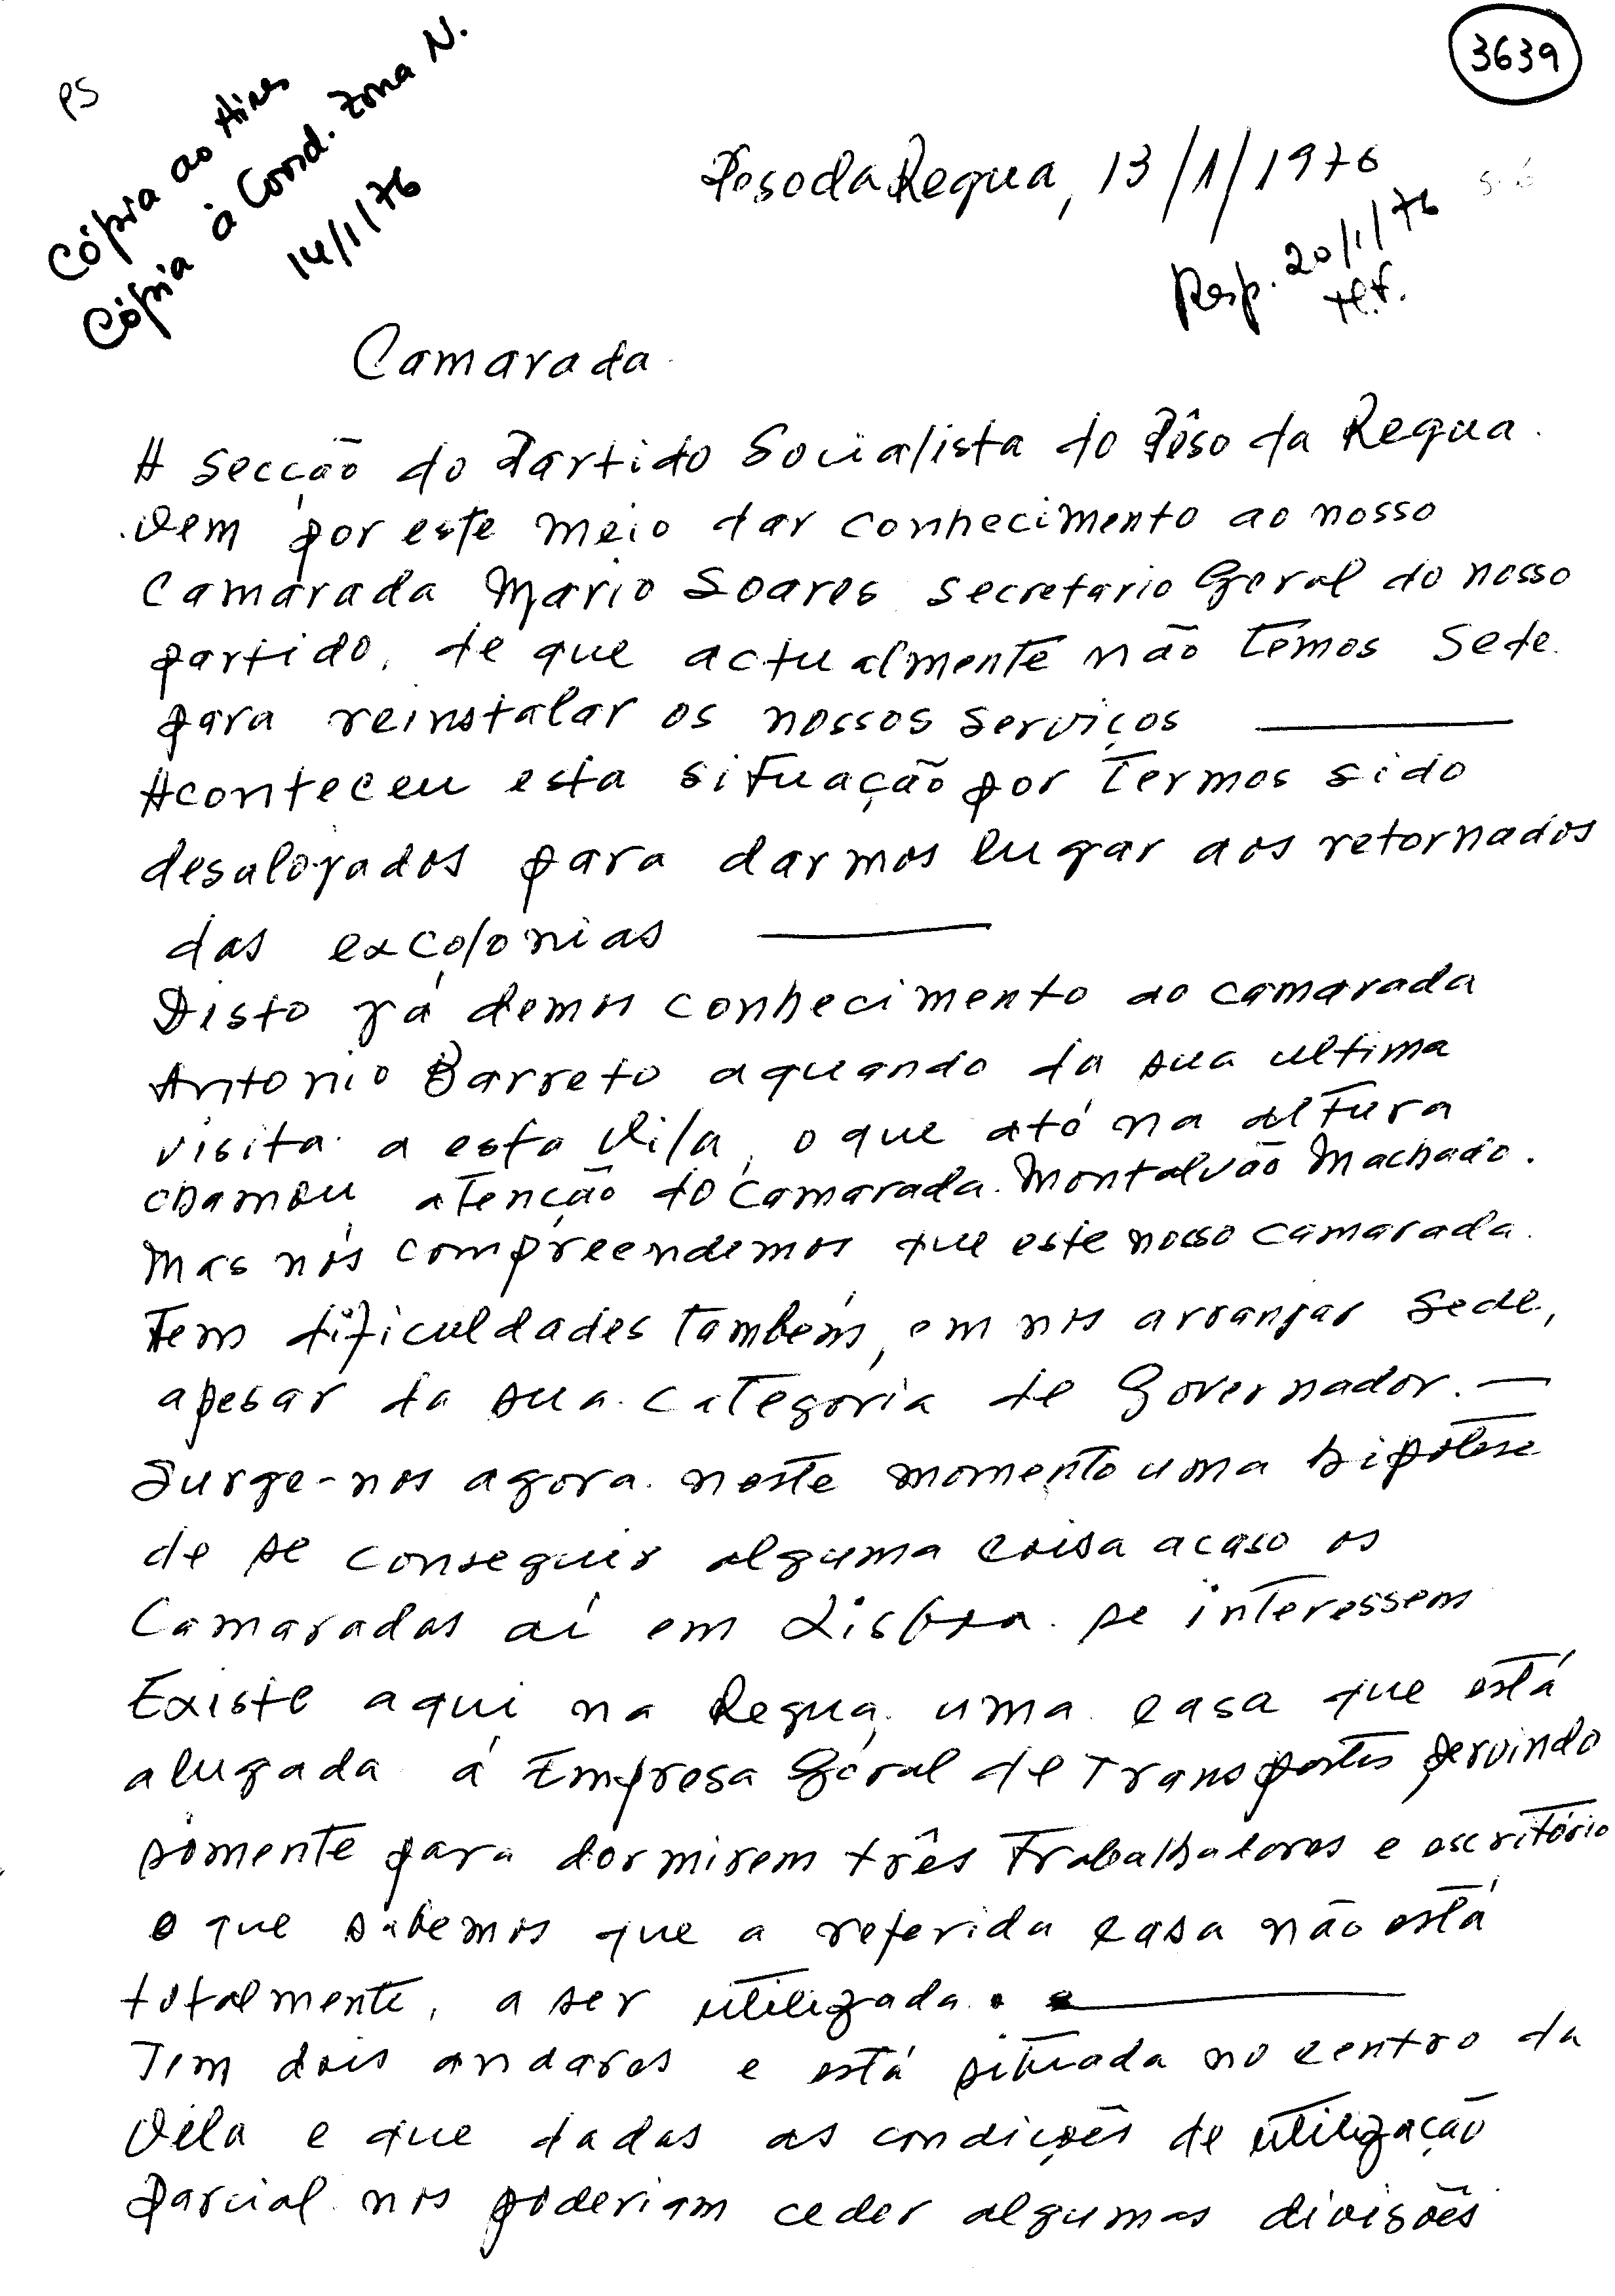 3639
PS
Cópia ao Aires
Cópia à Coord. Zona N.
14/1/76
Peso da Regua, 13/1/1976
Resp. 20/1/76
Camarada
A secção do Partido Socialista do Pêso da Regua
vem por este meio dar conhecimento ao nosso
Camarada Mario Soares secretario Geral do nosso
partido, de que actualmente não temos Sede
para reinstalar os nossos serviços
Aconteceu esta situação por termos sido
desalojados para darmos lugar aos retornados
das excolonias
Disto já demos conhecimento ao camarada
Antonio Barreto aquando da sua ultima
visita a esta Vila, o que até na altura
chamou atenção do camarada Montalvão Machado.
Mas nós compreendemos que este nosso camarada
Tem dificuldades também, em nos arranjar Sede,
apesar da sua categoria de Governador.
Surge-nos agora neste momento uma hipótese
de se conseguir alguma coisa acaso os
Camaradas aí em Lisboa se interessem
Existe aqui na Regua uma casa que está
alugada á Empresa Geral de Transportes servindo
sómente para dormirem três Trabalhadores e escritório
o que sabemos que a referida casa não está
totalmente, a ser utilizada.
Tem dois andares e está situada no centro da
Vila e que dadas as condições de utilização
parcial nos poderiam ceder algumas divisões